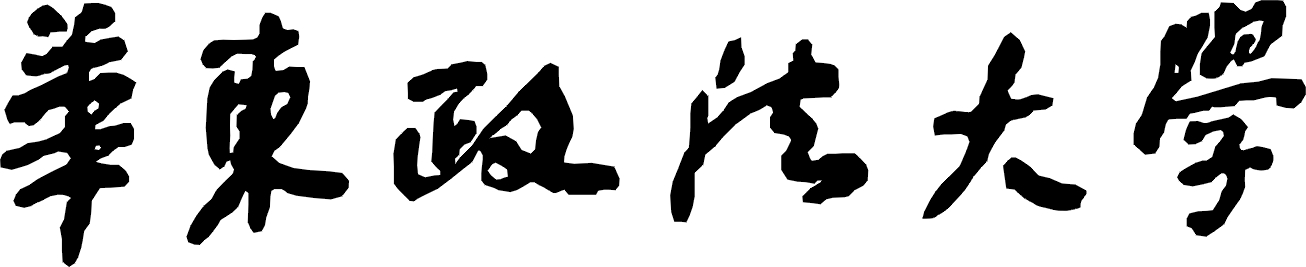 華東政法大學